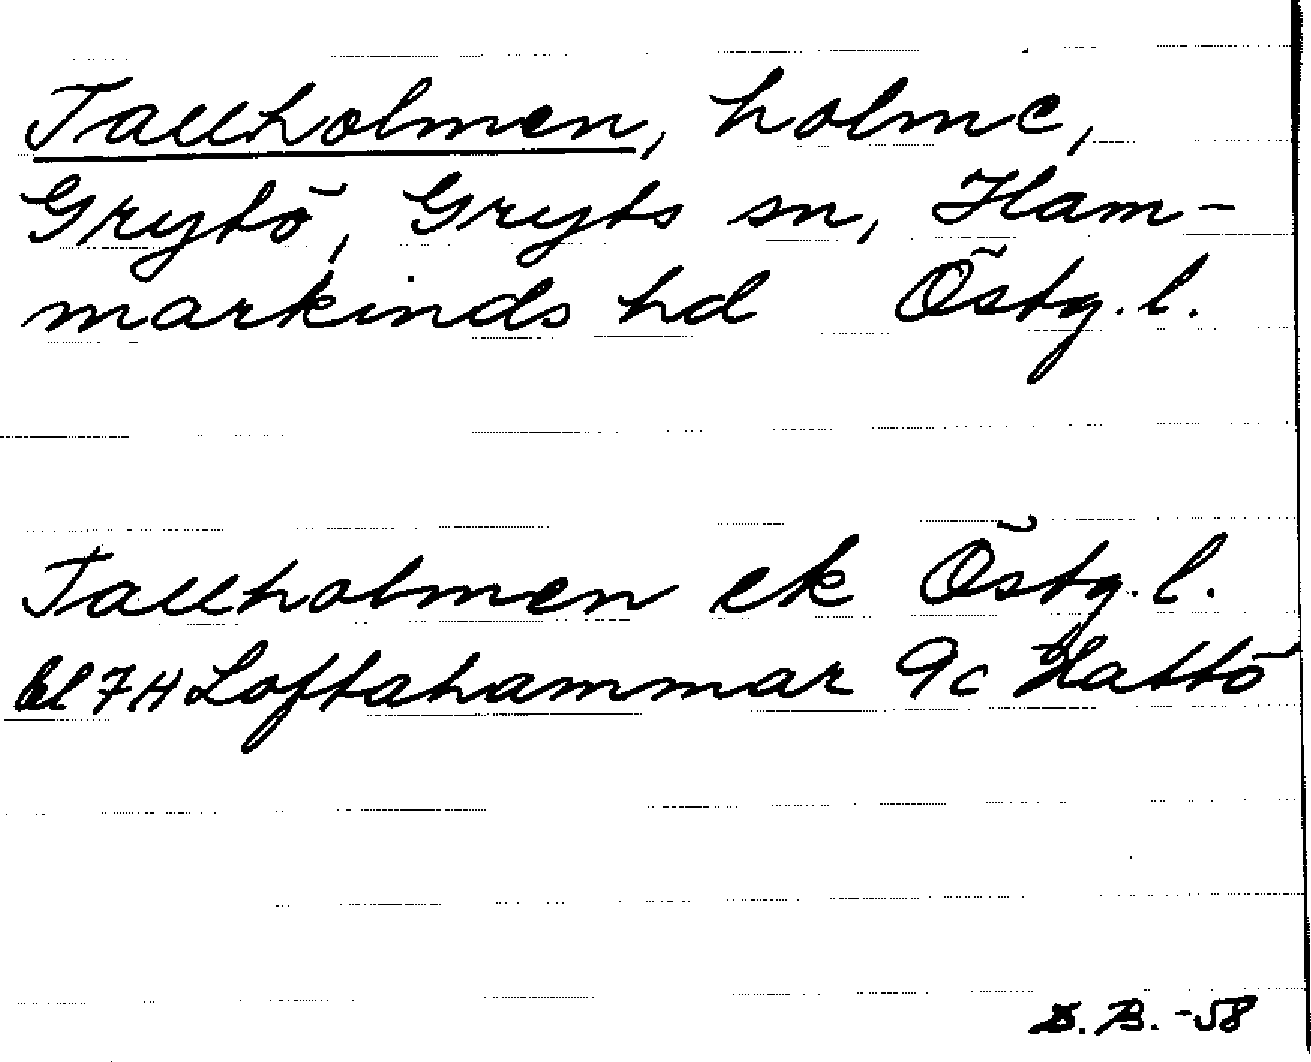 Tallholmen, holme,
Grytö, Gryts sn, Ham-
markinds hd Östg. l.
Tallholmen ek Östg. l.
Bl 7H Loftahammar 9c Hattö
S. B. -58